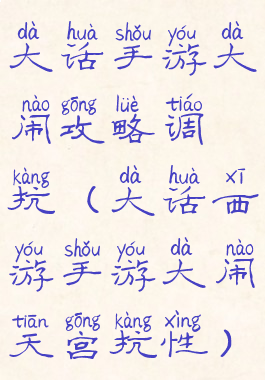 dà huà shǒu yóu dà
大话手游大
nào gōng lüè tiáo
闹攻略调
kàng dà huà xī
抗（大话西
yóu shǒu yóu dà nào
游手游大闹
tiān gōng kàng xìng
天宫抗性）